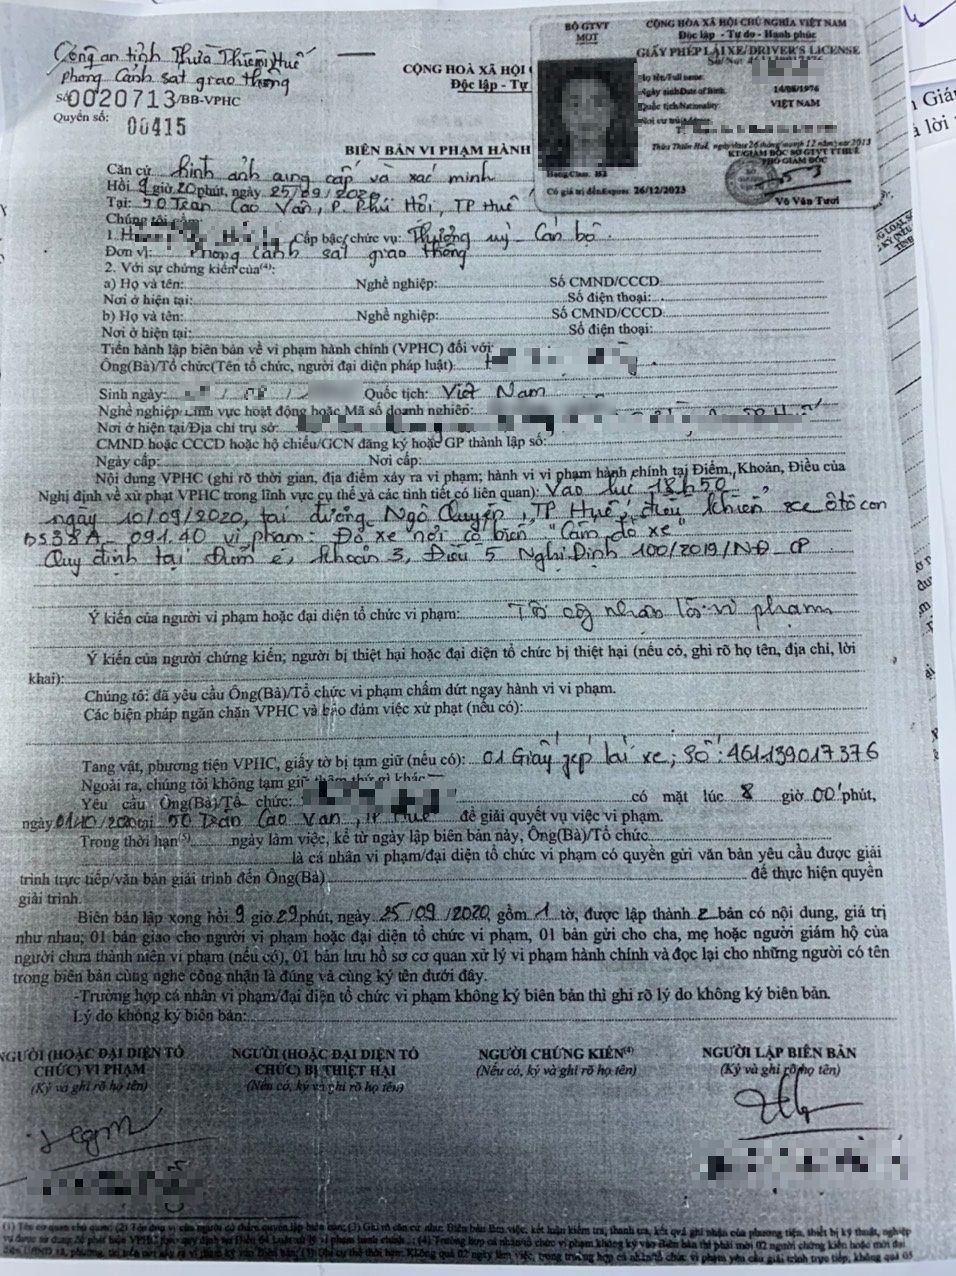 Công an tỉnh Thừa Thiên Huế
Phòng Cảnh sát giao thông
Số 0020713/BB-VPHC
Quyển số: 00415
CỘNG HOÀ XÃ HỘI
Độc lập - Tự
BIÊN BẢN VI PHẠM HÀNH
BỘ GTVT
MOT
CỘNG HÒA XÃ HỘI CHỦ NGHĨA VIỆT NAM
Độc lập - Tự do - Hạnh phúc
GIẤY PHÉP LÁI XE/DRIVER'S LICENSE
Số/No:
Họ tên/Full name:
Ngày sinh/Date of Birth: 14/08/1976
Quốc tịch/Nationality: VIỆT NAM
Nơi cư trú/Address:
Thừa Thiên Huế, ngày/date 26 tháng/month 12 năm/year 2013
KT/GIÁM ĐỐC SỞ GTVT TT HUẾ
PHÓ GIÁM ĐỐC
Hạng/Class: B2
Có giá trị đến/Expires: 26/12/2023
Võ Văn Tươi
Căn cứ hình ảnh cung cấp và xác minh
Hồi 9 giờ 20 phút, ngày 25/09/2020
Tại: 50 Trần Cao Vân, P. Phú Hội, TP Huế
Chúng tôi gồm:
1. Cấp bậc/chức vụ: Thượng uý - Cán bộ
Đơn vị: Phòng cảnh sát giao thông
2. Với sự chứng kiến của(4):
a) Họ và tên: Nghề nghiệp: Số CMND/CCCD
Nơi ở hiện tại: Số điện thoại:
b) Họ và tên: Nghề nghiệp: Số CMND/CCCD:
Nơi ở hiện tại: Số điện thoại:
Tiến hành lập biên bản về vi phạm hành chính (VPHC) đối với:
Ông(Bà)/Tổ chức(Tên tổ chức, người đại diện pháp luật):
Sinh ngày: / / Quốc tịch: Việt Nam
Nghề nghiệp/Lĩnh vực hoạt động hoặc Mã số doanh nghiệp:
Nơi ở hiện tại/Địa chỉ trụ sở:
CMND hoặc CCCD hoặc hộ chiếu/GCN đăng ký hoặc GP thành lập số:
Ngày cấp: Nơi cấp:
Nội dung VPHC (ghi rõ thời gian, địa điểm xảy ra vi phạm; hành vi vi phạm hành chính tại Điểm, Khoản, Điều của
Nghị định về xử phạt VPHC trong lĩnh vực cụ thể và các tình tiết có liên quan): Vào lúc 18h50
ngày 10/09/2020, tại đường Ngô Quyền, TP Huế, điều khiển xe ôtô con
BS38A-091.40 vi phạm: Đỗ xe nơi có biển "Cấm đỗ xe"
Quy định tại Điểm e, Khoản 3, Điều 5 Nghị Định 100/2019/NĐ-CP
Ý kiến của người vi phạm hoặc đại diện tổ chức vi phạm: Tôi công nhận lỗi vi phạm
Ý kiến của người chứng kiến; người bị thiệt hại hoặc đại diện tổ chức bị thiệt hại (nếu có, ghi rõ họ tên, địa chỉ, lời
khai):
Chúng tôi đã yêu cầu Ông(Bà)/Tổ chức vi phạm chấm dứt ngay hành vi vi phạm.
Các biện pháp ngăn chặn VPHC và bảo đảm việc xử phạt (nếu có):
Tang vật, phương tiện VPHC, giấy tờ bị tạm giữ (nếu có): 01 Giấy phép lái xe; Số: 461139017376
Ngoài ra, chúng tôi không tạm giữ thêm thứ gì khác
Yêu cầu Ông(Bà)/Tổ chức: có mặt lúc 8 giờ 00 phút,
ngày 01/10/2020 tại 50 Trần Cao Vân, TP Huế để giải quyết vụ việc vi phạm.
Trong thời hạn(5) ngày làm việc, kể từ ngày lập biên bản này, Ông(Bà)/Tổ chức
là cá nhân vi phạm/đại diện tổ chức vi phạm có quyền gửi văn bản yêu cầu được giải
trình trực tiếp/văn bản giải trình đến Ông(Bà) để thực hiện quyền
giải trình.
Biên bản lập xong hồi 9 giờ 29 phút, ngày 25/09/2020, gồm 1 tờ, được lập thành 2 bản có nội dung, giá trị
như nhau; 01 bản giao cho người vi phạm hoặc đại diện tổ chức vi phạm, 01 bản gửi cho cha, mẹ hoặc người giám hộ của
người chưa thành niên vi phạm (nếu có), 01 bản lưu hồ sơ cơ quan xử lý vi phạm hành chính và đọc lại cho những người có tên
trong biên bản cùng nghe công nhận là đúng và cùng ký tên dưới đây.
-Trường hợp cá nhân vi phạm/đại diện tổ chức vi phạm không ký biên bản thì ghi rõ lý do không ký biên bản.
Lý do không ký biên bản:
NGƯỜI (HOẶC ĐẠI DIỆN TỔ
CHỨC) VI PHẠM
(Ký và ghi rõ họ tên)
NGƯỜI (HOẶC ĐẠI DIỆN TỔ
CHỨC) BỊ THIỆT HẠI
(Nếu có, ký và ghi rõ họ tên)
NGƯỜI CHỨNG KIẾN(4)
(Nếu có, ký và ghi rõ họ tên)
NGƯỜI LẬP BIÊN BẢN
(Ký và ghi rõ họ tên)